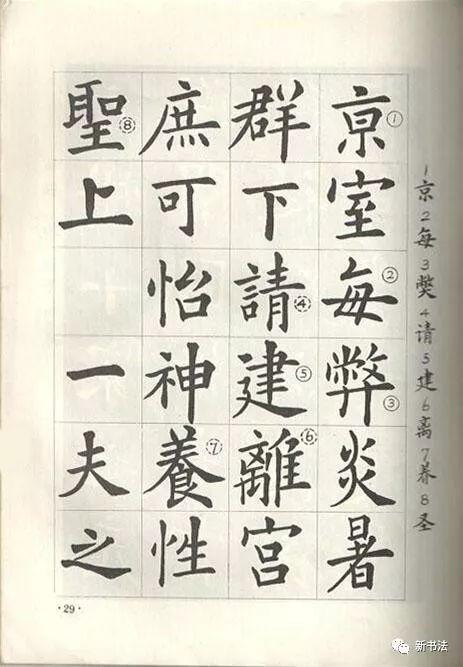 1京2每3獘4请5建6离7养8圣
亰①室每②弊③炎暑
群下請④建⑤離⑥宮
庶可怡神養⑦性
聖⑧上一夫之
·29·
新书法